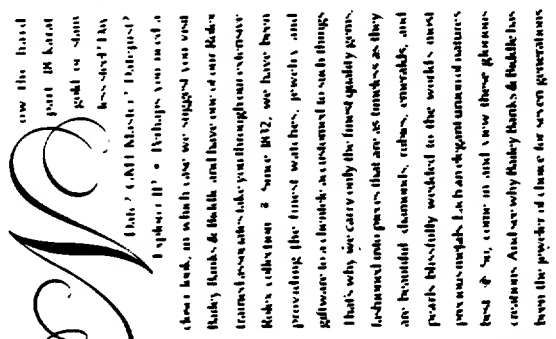 N
ow the hard
part 18 karat
gold or stain
less steel? Day
Date? GMT Master? Datejust?
Explorer II? • Perhaps you need a
closer look, in which case we suggest you visit
Bailey Banks & Biddle and have one of our Rolex
trained associates take you through our extensive
Rolex collection Since 1832, we have been
providing the finest watches, jewelry and
giftware to a clientele accustomed to such things
That's why we carry only the finest quality gems,
fashioned into pieces that are as timeless as they
are beautiful diamonds, rubies, emeralds, and
pearls blissfully wedded to the world's most
precious metals Each an elegant union of nature's
best So, come in and view these glorious
creations And see why Bailey Banks & Biddle has
been the jeweler of choice for seven generations